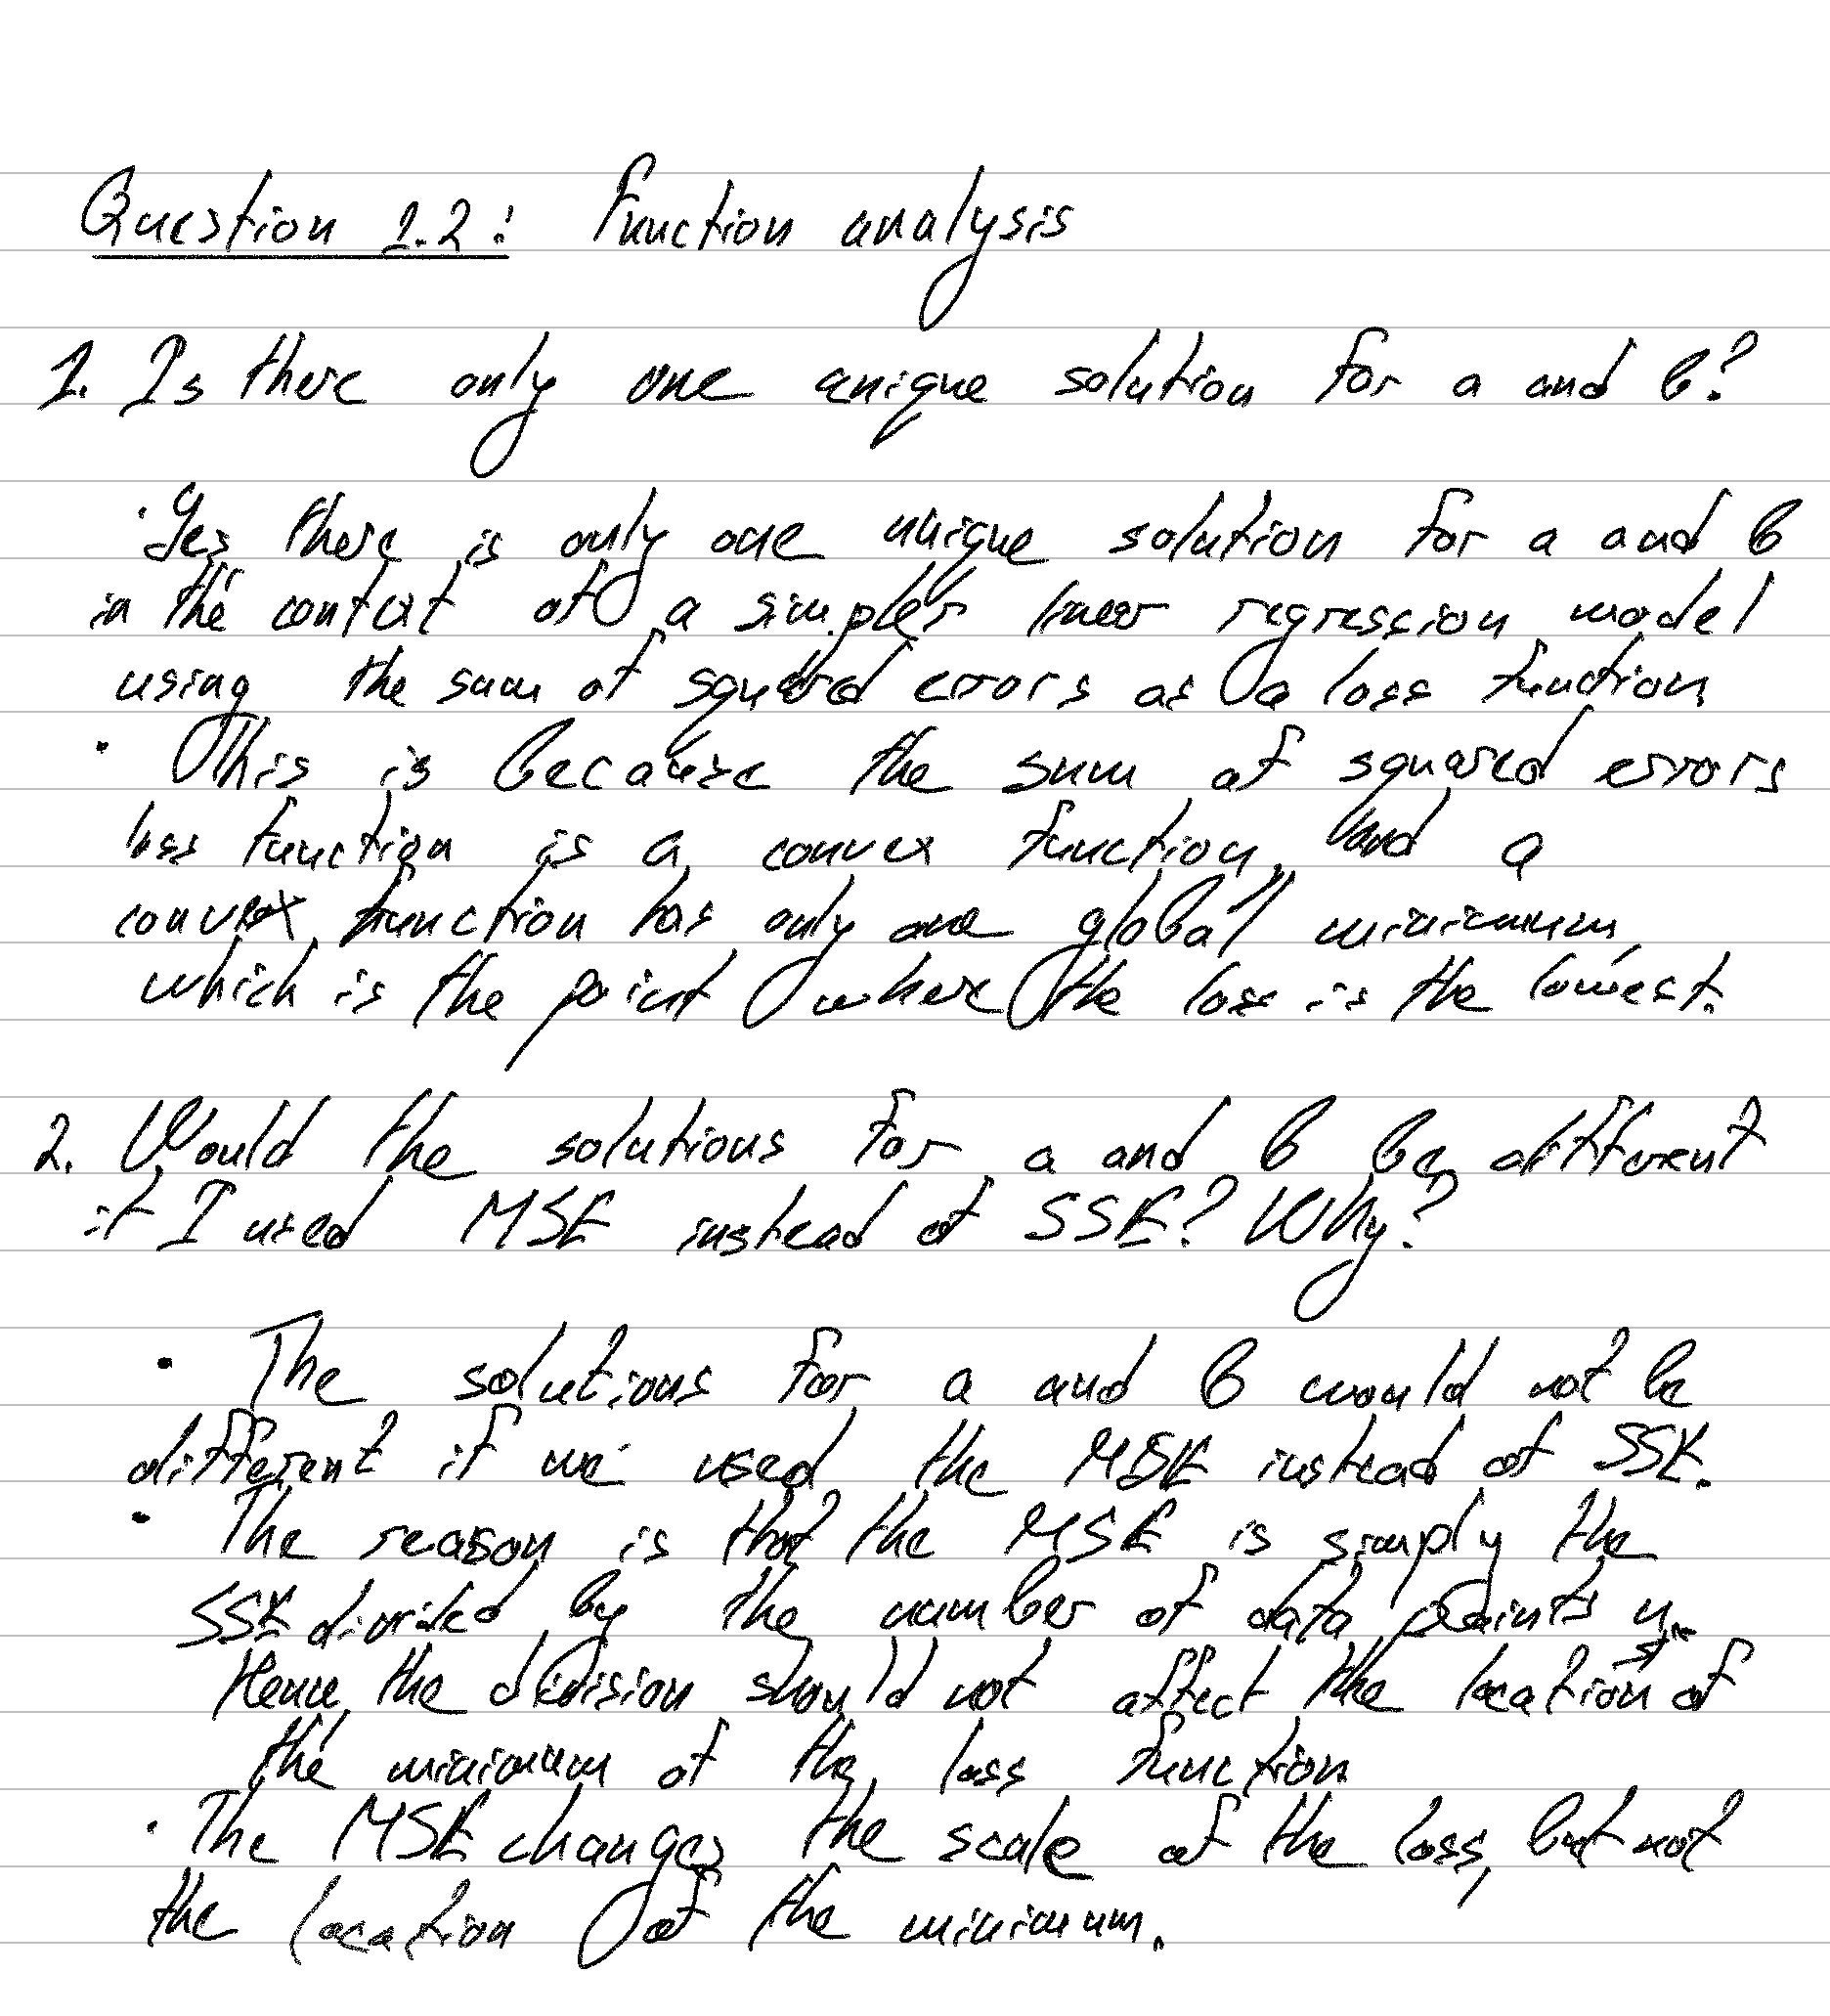 Question 1.2: Function analysis
1. Is there only one unique solution for a and b?
· Yes there is only one unique solution for a and b
in the context of a simpler linear regression model
using the sum of squared errors as a loss function
· This is because the sum of squared errors
loss function is a convex function, and a
convex function has only one global minimum,
which is the point where the loss is the lowest.
2. Would the solutions for a and b be different
if I used MSE instead of SSE? Why?
· The solutions for a and b would not be
different if we used the MSE instead of SSE.
· The reason is that the MSE is simply the
SSE divided by the number of data points n.
Hence the division should not affect the location of
the minimum of the loss function
· The MSE changes the scale of the loss, but not
the location of the minimum.